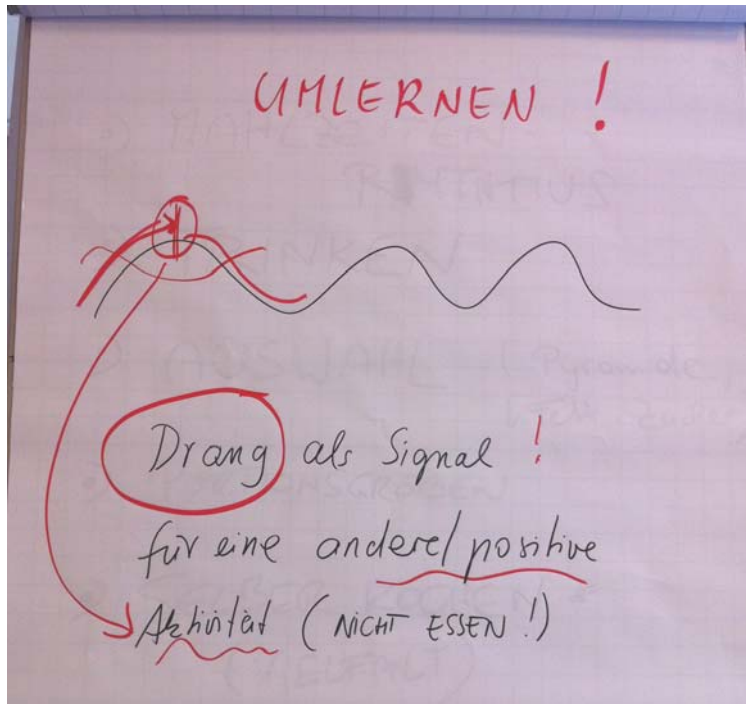 UMLERNEN !
Drang als Signal !
für eine andere/positive
Aktivität (NICHT ESSEN!)